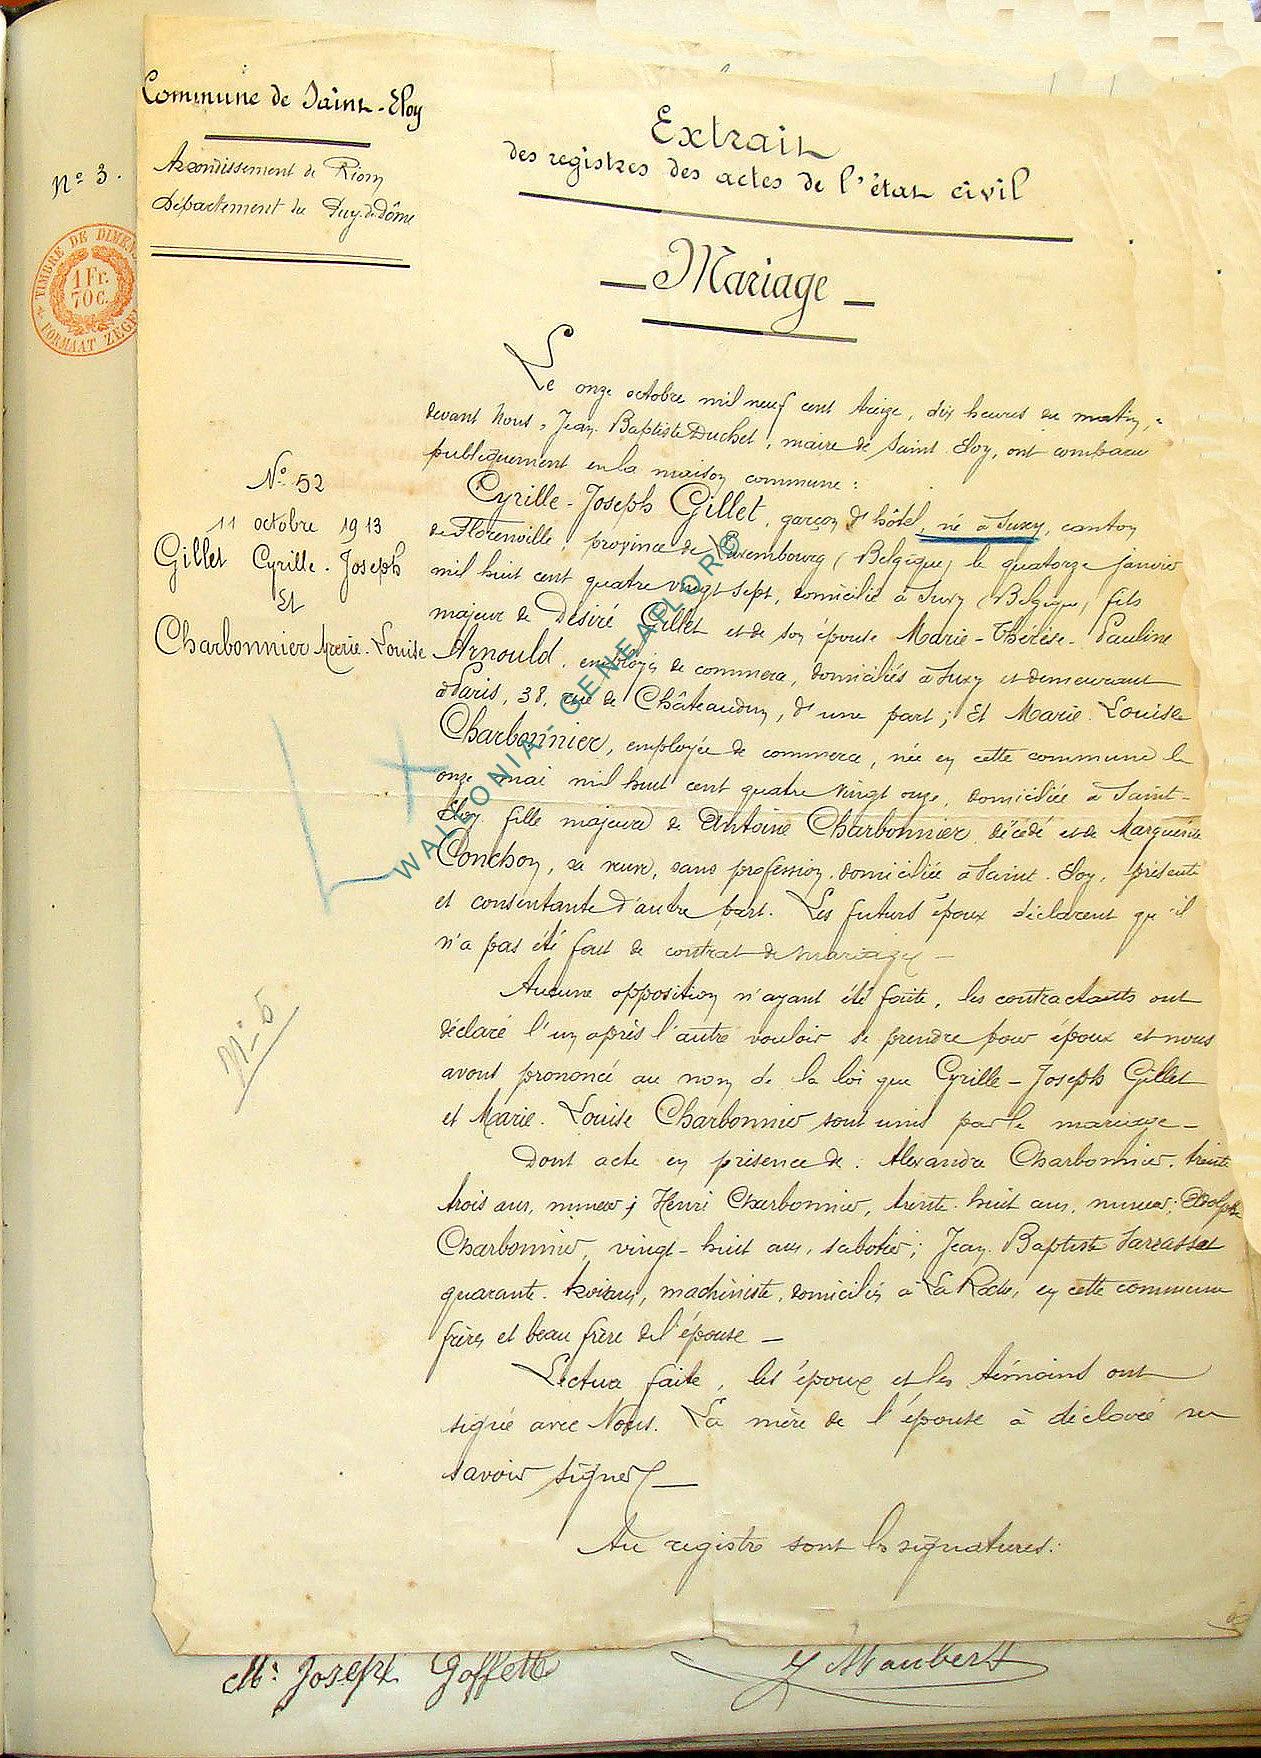 Commune de Saint-Eloy
Arrondissement de Riom
Département du Puy-de-Dôme
Nº 3.
TIMBRE DE DIMEN
1 Fr.
70 C.
FORMAAT ZEGEL
Extrait
des registres des actes de l'état civil
Mariage
Nº 52
11 octobre 1913
Gillet Cyrille-Joseph
Et
Charbonnier Marie-Louise
Le onze octobre mil neuf cent treize, dix heures du matin,
devant Nous, Jean-Baptiste Duchet, maire de Saint-Eloy, ont comparu
publiquement en la maison commune :
Cyrille-Joseph Gillet, garçon d'hôtel, né à Suxy, canton
de Florenville, province de Luxembourg (Belgique) le quatorze janvier
mil huit cent quatre vingt sept, domicilié à Suxy (Belgique) fils
majeur de Désiré Gillet et de son épouse Marie-Thérèse-Pauline
Arnould, employés de commerce, domiciliés à Suxy et demeurant
à Paris, 38, rue de Châteaudun, d'une part ; Et Marie-Louise
Charbonnier, employée de commerce, née en cette commune le
onze mai mil huit cent quatre vingt onze, domiciliée à Saint-
Eloy fille majeure de Antoine Charbonnier, décédé et de Marguerite
Conchon, sa veuve, sans profession, domiciliée à Saint-Eloy, présente
et consentante d'autre part. Les futurs époux déclarent qu'il
n'a pas été fait de contrat de mariage —
Aucune opposition n'ayant été faite, les contractants ont
déclaré l'un après l'autre vouloir se prendre pour époux et nous
avons prononcé au nom de la loi que Cyrille-Joseph Gillet
et Marie-Louise Charbonnier sont unis par le mariage —
Dont acte en présence de : Alexandre Charbonnier, trente
trois ans, mineur ; Henri Charbonnier, trente-huit ans, mineur ; Adolphe
Charbonnier, vingt-huit ans, sabotier ; Jean-Baptiste Sarrassat
quarante-trois ans, machiniste, domiciliés à La Roche, en cette commune
frères et beau frère de l'épouse —
Lecture faite, les époux et les témoins ont
signé avec Nous. La mère de l'épouse à déclaré ne
savoir signer —
Au registre sont les signatures.
WALLONIA-GENEAFLOR©
Mª Joseph Goffette
J Maubert